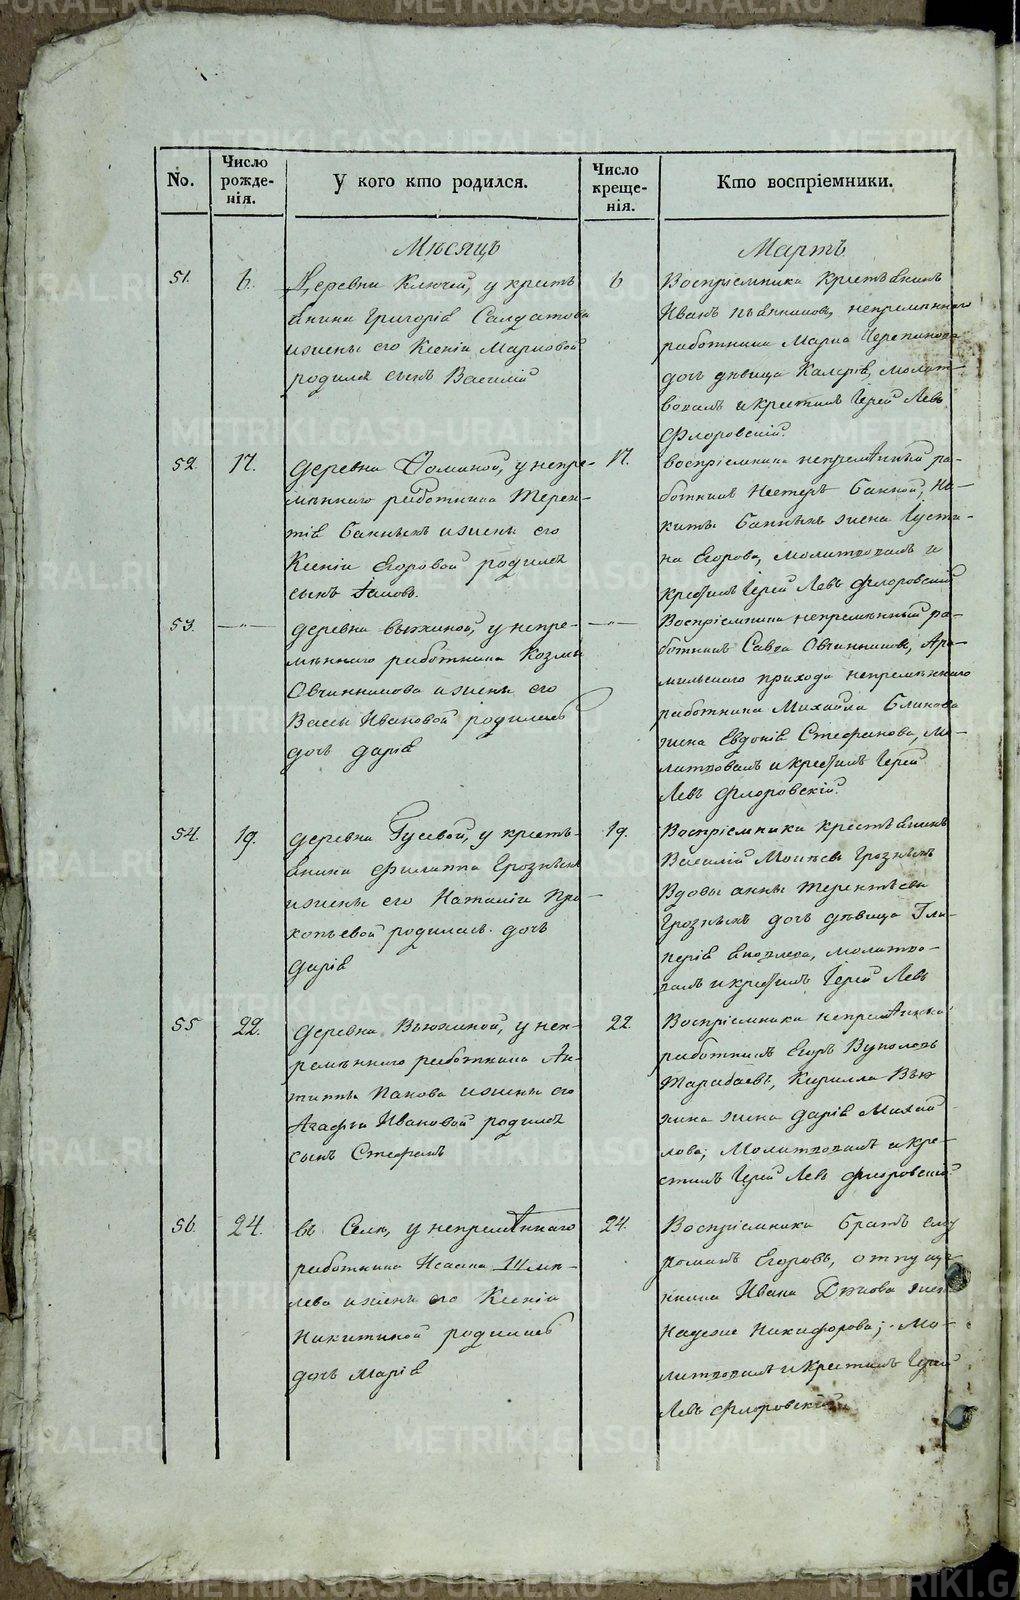 No.
Число
рожде-
нія.
У кого кто родился.
Число
креще-
нія.
Кто воспріемники.
Мѣсяцъ
Мартъ
51.
6.
Деревни Ключей, у кресть
янина Григорія Салдатова
и жены его Ксеніи Марковой
родился сынъ Василій
6
Воспріемники Крестьянинъ
Иванъ непремѣннаго
работника Марка Черепанова
дочь дѣвица Калерія, молит-
вовалъ и крестилъ Іерей Левъ
Флоровскій.
52.
17.
деревни Ѳоминой, у непре-
мѣннаго работника Терен-
тія Банныхъ и жены его
Ксеніи Егоровой родился
сынъ Іаковъ.
17.
воспріемники непремѣнный ра-
ботникъ Нестеръ Банной, Ни-
киты Банныхъ жена Іусти-
на Егорова, молитвовалъ и
крестилъ Іерей Левъ Флоровскій
53.
—"—
деревни Вьюхиной, у непре-
мѣннаго работника Козмы
Овчинникова и жены его
Вассы Ивановой родилась
дочь Дарія
—"—
Воспріемники непремѣнный ра-
ботникъ Савва Овчинниковъ, Ара-
мильскаго прихода непремѣннаго
работника Михайла Блинова
жена Евдокія Стефанова, мо-
литвовалъ и крестилъ Іерей
Левъ Флоровскій.
54.
19.
деревни Гусевой, у кресть-
янина Филиппа Грозныхъ
и жены его Наталіи Про-
копьевой родилась дочь
Дарія
19.
Воспріемники крестьянинъ
Василій Моисѣевъ Грозныхъ
Вдовы Анны Терентьевы
Грозныхъ дочь дѣвица Гли-
керія молитво-
валъ и крестилъ Іерей Левъ
55
22.
деревни Вьюхиной, у неп-
ремѣннаго работника Ан-
типы Панова и жены его
Агафьи Ивановой родился
сынъ Стефанъ
22.
Воспріемники непремѣнный
работникъ Егоръ Вуколовъ
Тарабаевъ, Кирилла Вью
хина жена Дарія Михай
лова; Молитвовалъ и кре-
стилъ Іерей Левъ Флоровскій.
56
24.
въ Селѣ, у непремѣннаго
работника Исаака Шме-
лева и жены его Ксеніи
Никитиной родилась
дочь Марія
24.
Воспріемники братъ ему
романъ Егоровъ, отпущен-
ника Ивана жена
Надежда Никифорова; Мо-
литвовалъ и крестилъ Іерей
Левъ Флоровскій
METRIKI.GASO-URAL.RU